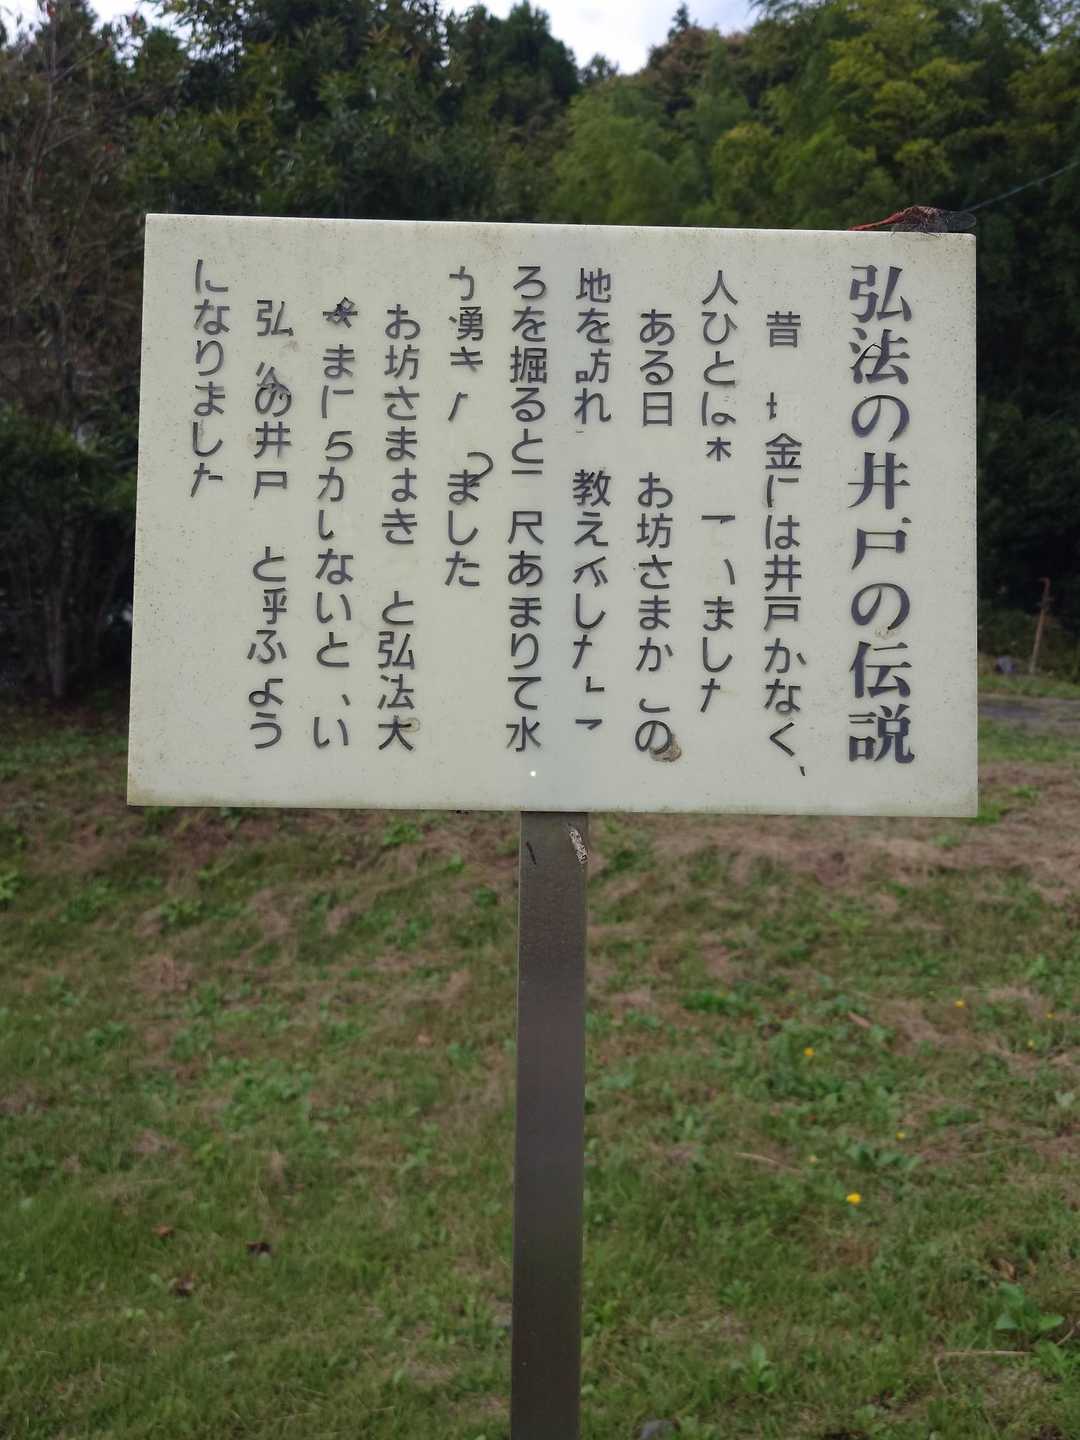 弘法の井戸の伝説
昔 金には井戸かなく、
人ひとは ました
ある日 お坊さまか この
地を訪れ 教え した
ろを掘ると 尺あまりて水
湧き ました
お坊さまはき と弘法大
まに ちがいないと、い
弘 の井戸 と呼ふよう
になりました